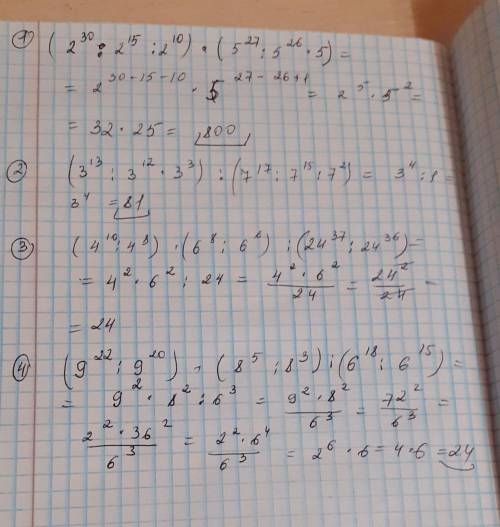 ① (2³⁰ : 2¹⁵ : 2¹⁰) · (5²⁷ : 5²⁶ · 5) =
= 2³⁰⁻¹⁵⁻¹⁰ · 5²⁷⁻²⁶⁺¹ = 2⁵ · 5² =
= 32 · 25 = 800
② (3¹³ : 3¹² · 3³) : (7¹⁷ : 7¹⁵ : 7²) = 3⁴ : 1 =
3⁴ = 81
③ (4¹⁰ : 4⁸) · (6⁸ : 6⁶) : (24³⁷ : 24³⁶) =
= 4² · 6² : 24 = 4² · 6² / 24 = 24² / 24 =
= 24
④ (9²² : 9²⁰) · (8⁵ : 8³) : (6¹⁸ : 6¹⁵) =
= 9² · 8² : 6³ = 9² · 8² / 6³ = 72² / 6³ =
2² · 36² / 6³ = 2² · 6⁴ / 6³ = 2⁶ · 6 = 4 · 6 = 24